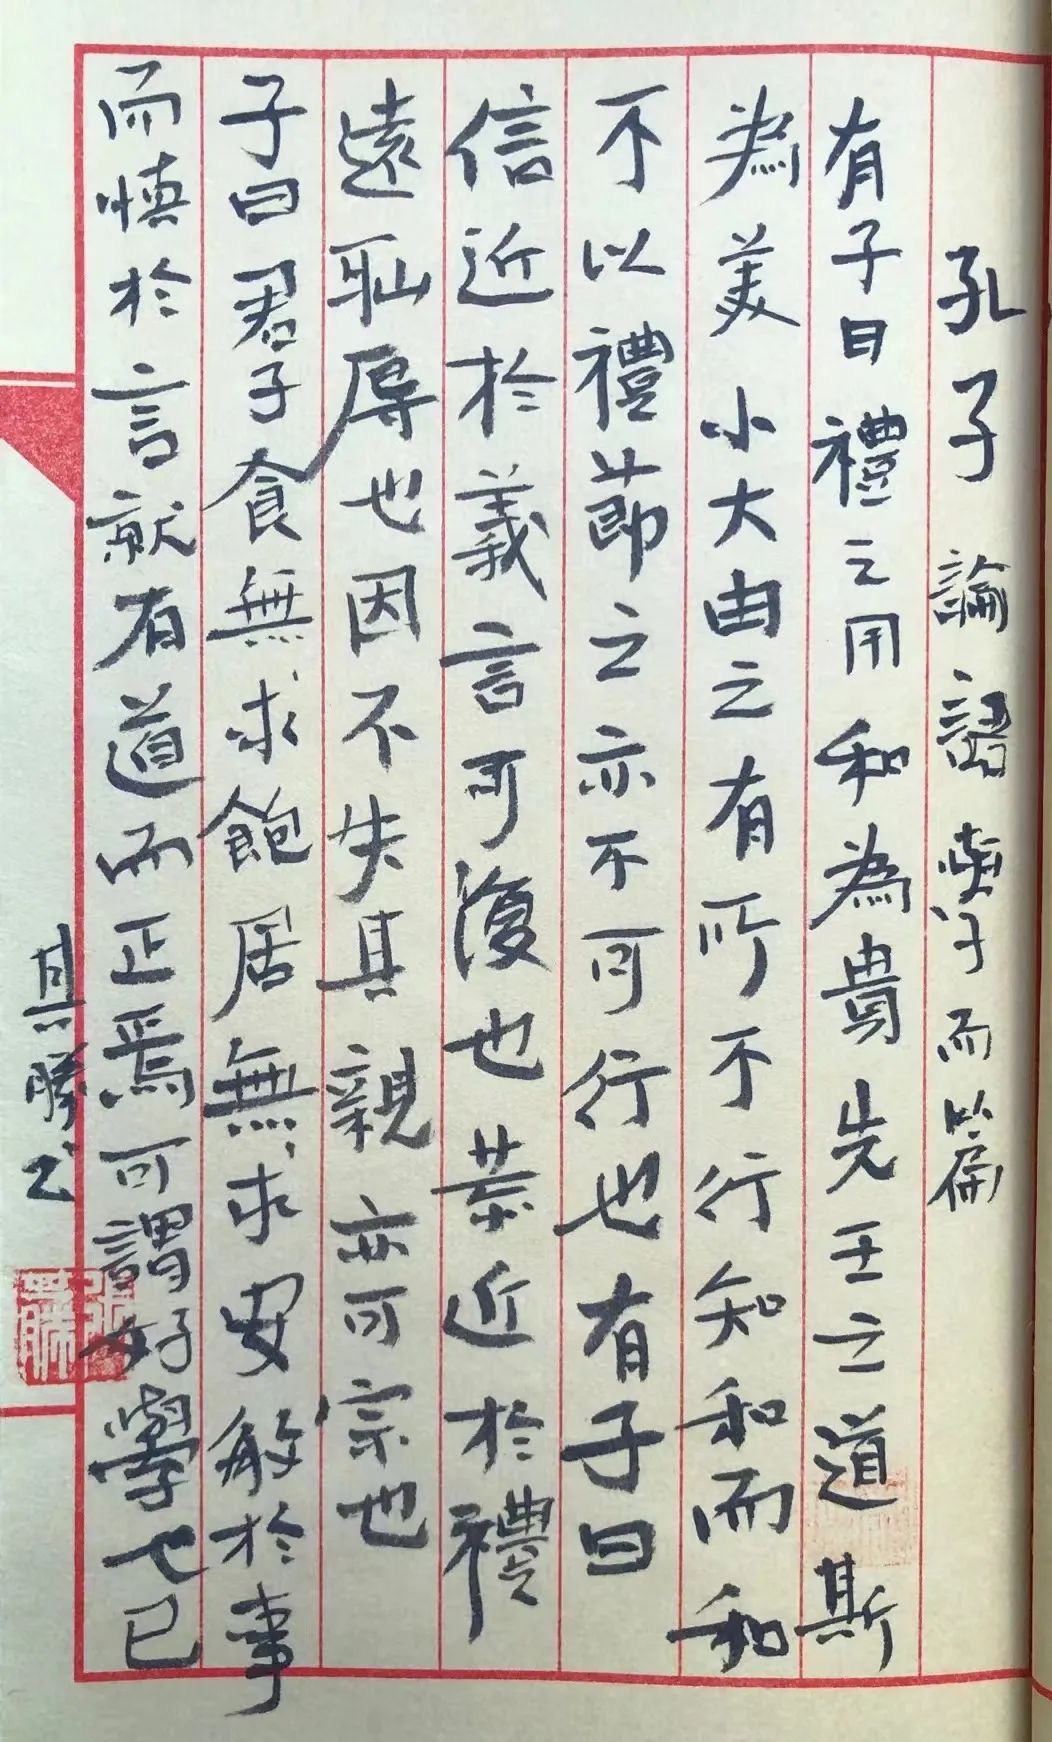 孔子論語學而篇
有子曰禮之用和為貴先王之道斯
為美小大由之有所不行知和而和
不以禮節之亦不可行也有子曰
信近於義言可復也恭近於禮
遠恥辱也因不失其親亦可宗也
子曰君子食無求飽居無求安敏於事
而慎於言就有道而正焉可謂好學也已
其勝書